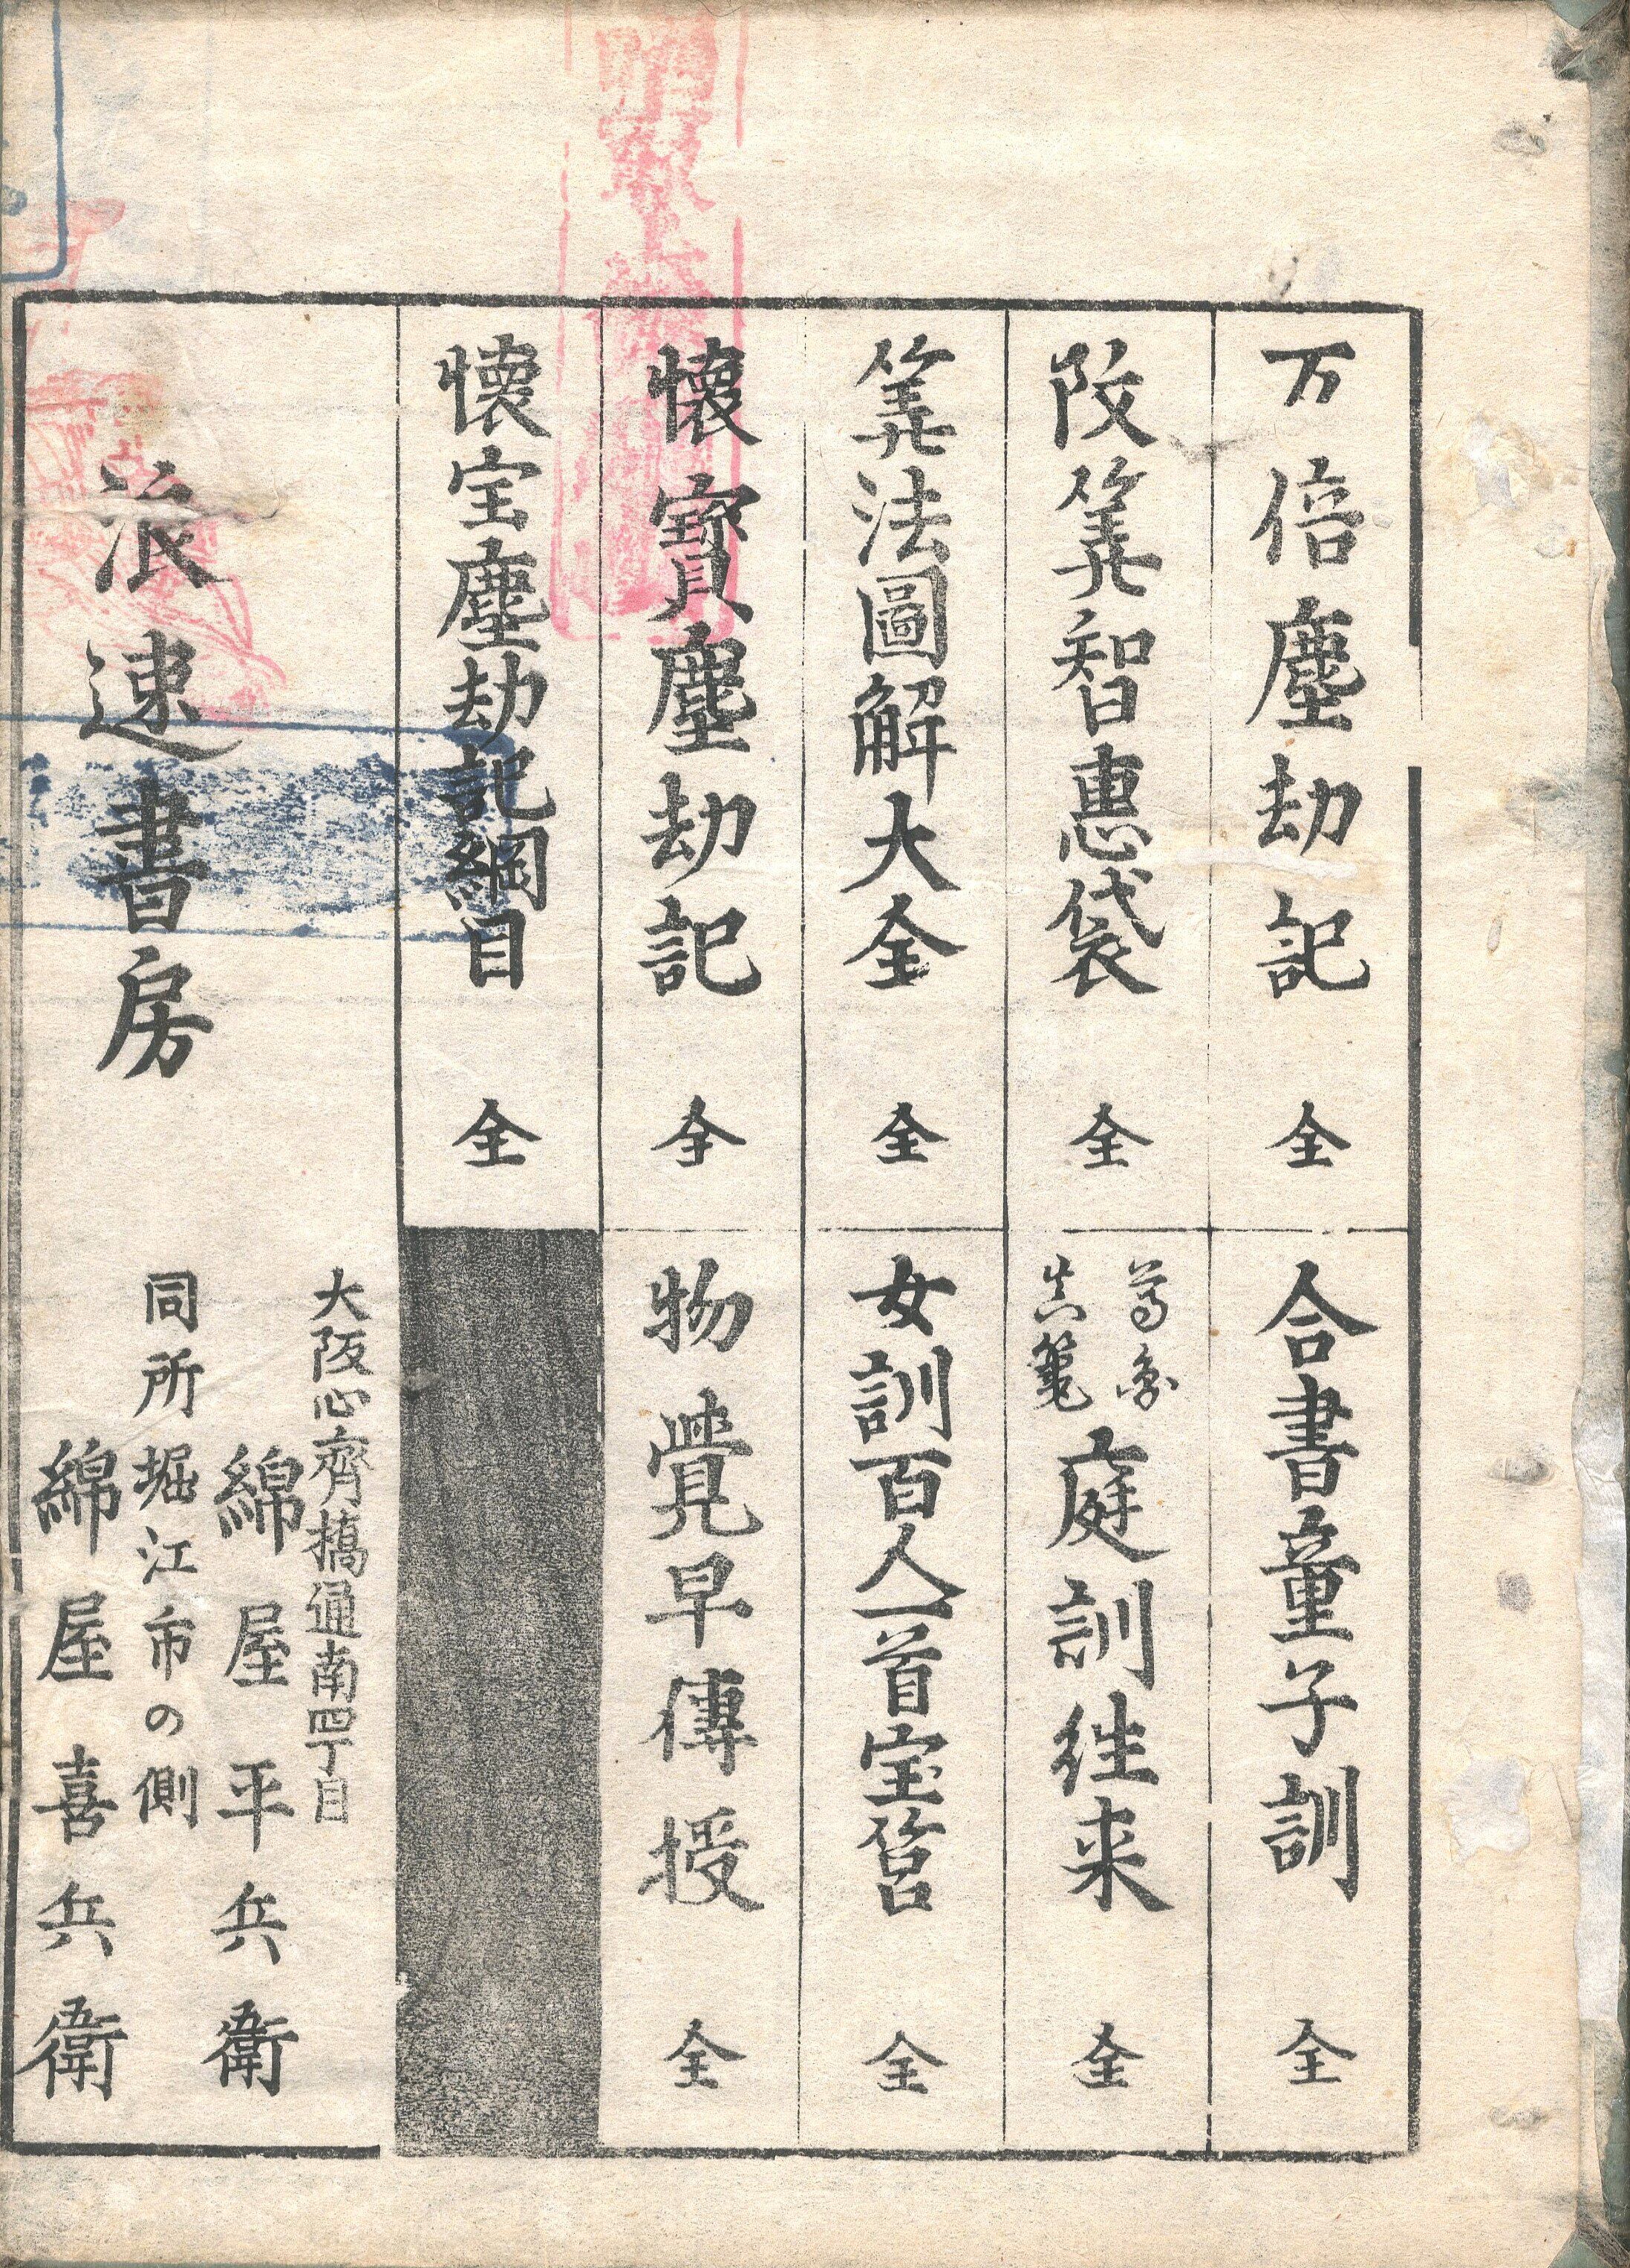 万倍塵劫記 全
改筭智惠袋 全
筭法圖解大全 全
懷寳塵劫記 全
懷宝塵劫記綱目 全
合書童子訓 全
庭訓徃来 全
女訓百人一首宝筥 全
物覺早傳授 全
浪速書房
大阪心齊橋通南四丁目
綿屋平兵衛
同所堀江市の側
綿屋喜兵衛